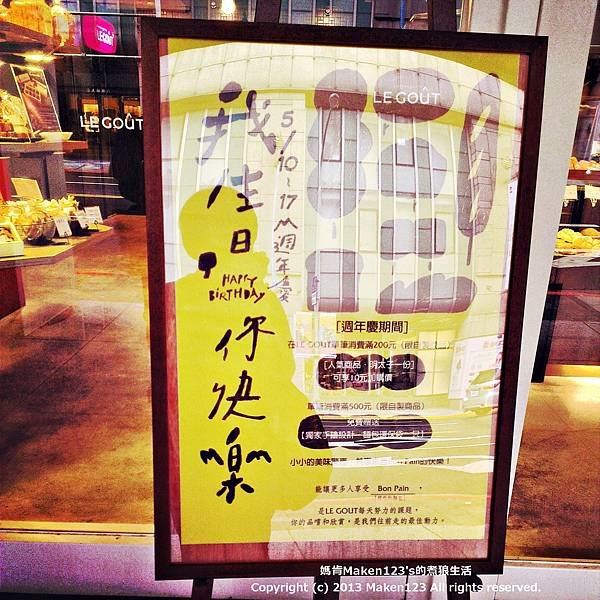 LE GOÛT
LE GOÛT
LE GOÛT
我生日
HAPPY
BIRTHDAY
你快樂
5/10~17 週年慶
[週年慶期間]
在LE GOUT單筆消費滿200元（限自製
[人氣商品·明太子一份]
可享10元加購價
單筆消費滿500元（限自製商品）
免費贈送
【獨家手繪設計－麵包環保袋一只】
小小的美味 的快樂！
能讓更多人享受 Bon Pain ，
是LE GOUT每天努力的課題，
你的品嚐和欣賞，是我們往前走的最佳動力。
媽肯Maken123's的煮狼生活
Copyright (c) 2013 Maken123 All rights reserved.